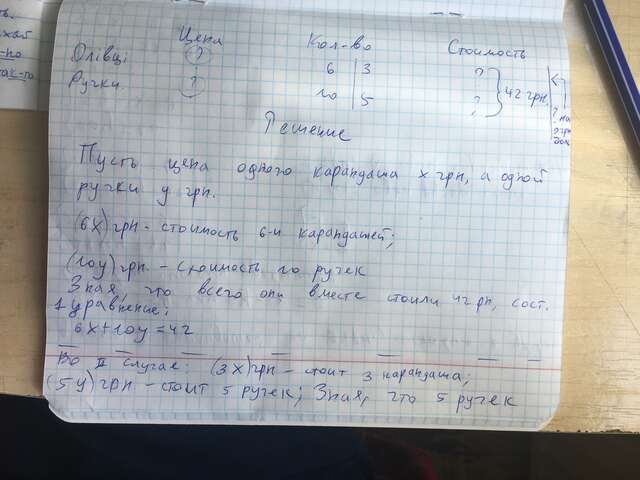 Цена Кол-во Стоимость
Олівці ? 6 3 ?
Ручки ? 10 5 ? 42 грн.
Решение
Пусть цена одного карандаша x грн, а одной
ручки y грн.
(6x) грн - стоимость 6-и карандашей;
(10y) грн. - стоимость 10 ручек
Зная, что всего они вместе стоили грн, сост.
1 уравнение:
6x+10y=42
Во II случае: (3x) грн - стоит 3 карандаша;
(5y) грн - стоит 5 ручек; Зная, что 5 ручек